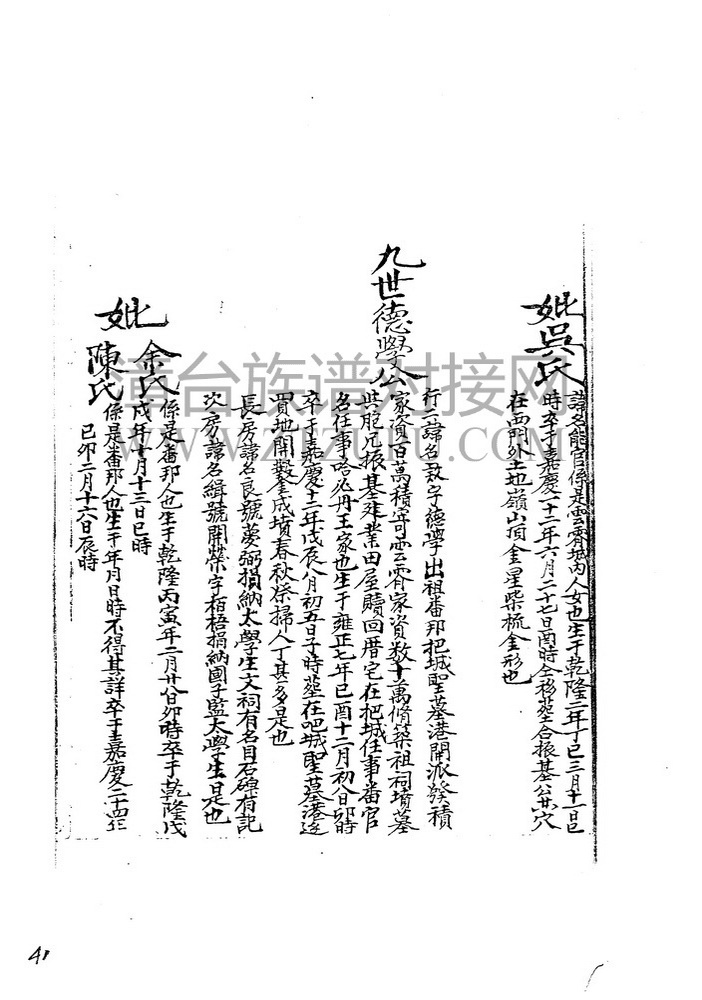 妣吳氏
諱名能官係是雲霄城內人女也生于乾隆二年丁巳三月十一日巳
時卒于嘉慶十二年六月二十七日酉時仝移塟合振基公共穴
在西門外土地嶺山頂金星柴梳金形也
九世德學公
行二諱名敦字德學出祖番邦把城聖墓港開派發積
家資百萬積寄雲霄家資数十萬脩築祖祠墳墓
與胞兄振基建業田屋贖回厝宅在把城任事番官
名任事哈必丹王家也生于雍正七年己酉十二月初八日卯時
卒于嘉慶十三年戊辰八月初五日子時塟在吧城聖墓港邊
買地開盤成墳春秋祭掃人丁甚多是也
長房諱名良號夢弼捐納太學生文祠有名目石碑有記
次房諱名緝號開榮字栢梧捐納國子監太學生是也
妣
余氏
係是番邦人也生于乾隆丙寅年二月廿八日卯時卒于乾隆戊
戌年十月十三日巳時
陳氏
係是番邦人也生于年月日時不得其詳卒于嘉慶二十四年
己卯二月十六日辰時
清台族谱对接网
WWW.ZTZUPU.COM
41